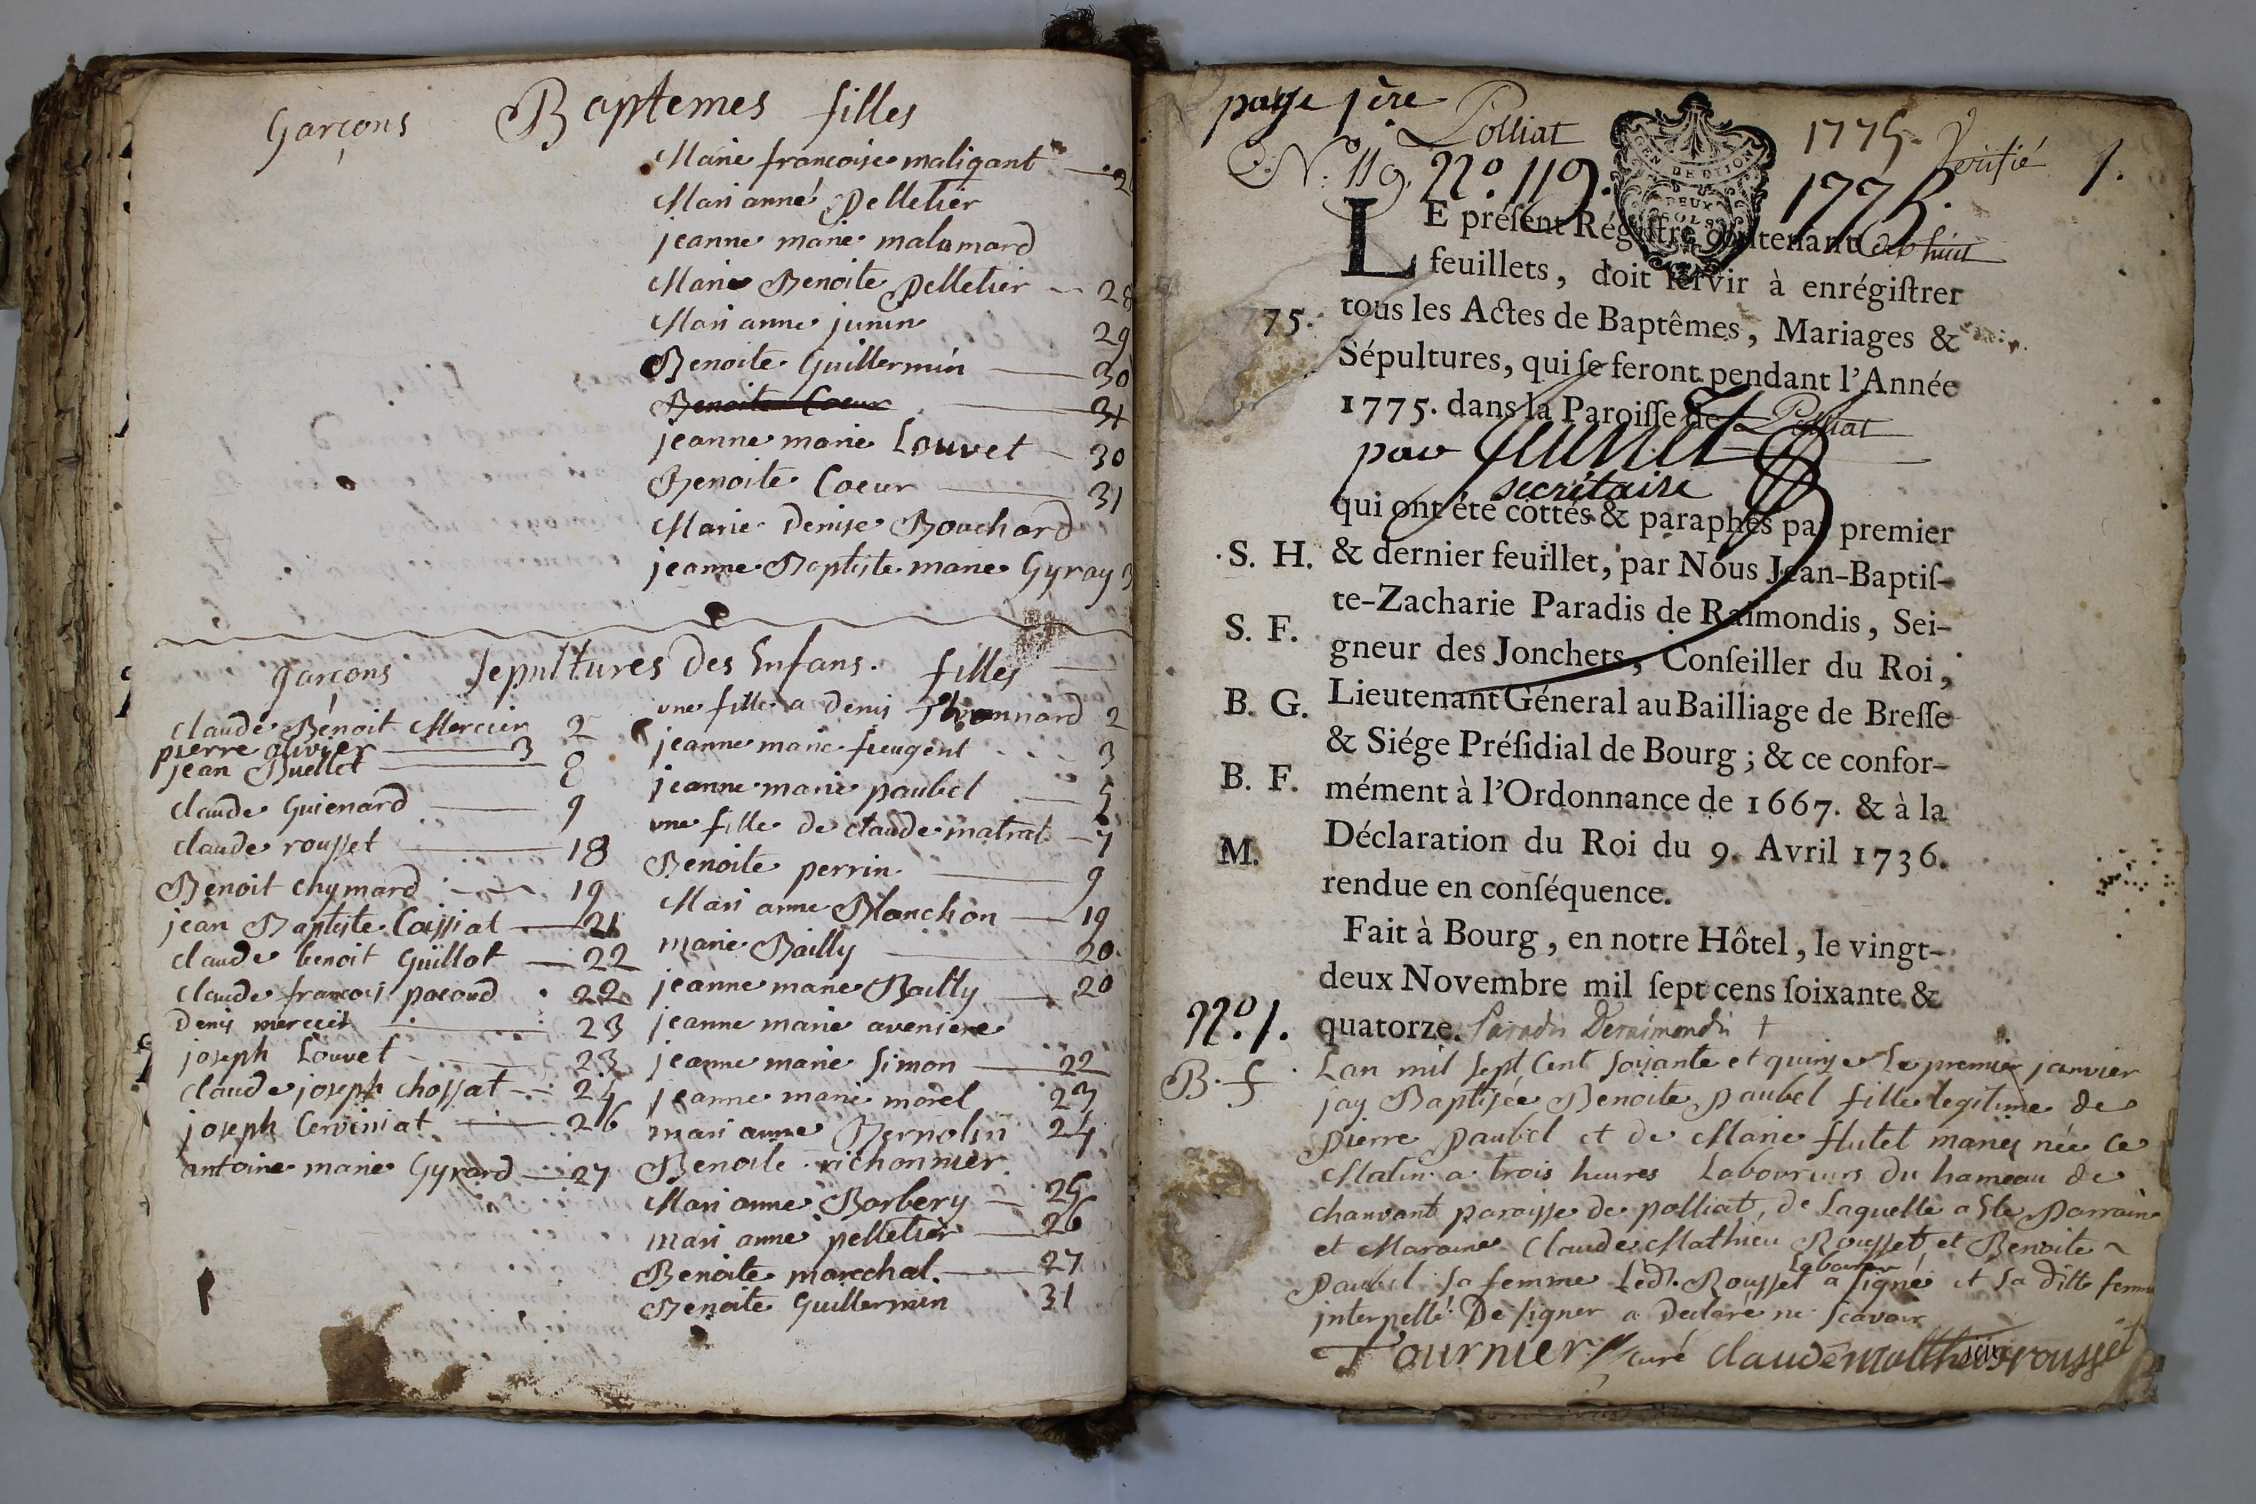 Garçons Baptemes filles
Marie francoise maligant
Mari anne Pelletier
jeanne marie malamard
Marie Benoite Pelletier 28
Mari anne junin 29
Benoite Guillermin 30
Benoite Coeur 31
jeanne marie Louvet 30
Benoite Coeur 31
Marie Denise Bouchard
jeanne Baptiste marie Gyray
garcons Sepultures Des Enfans. filles
Claude Benoit Mercier 2
pierre olivier 3
jean Buellet 8
claude Guienard 9
claude rousset 18
Benoit chymard 19
jean Baptiste Caissiat 21
claude benoit Guillot 22
claude francois pacoud 22
Denis mercier 23
joseph Louvet 23
claude joseph chossat 24
joseph Cerveniat 26
antoine marie Gyrard 27
une fille a denis 2
jeanne marie feugent 3
jeanne marie paubel 5
une fille de claude matrat 7
Benoite perrin 9
Mari anne Blanchon 19
marie Bailly 20
jeanne marie Bailly 20
jeanne marie aveniere
jeanne marie Simon 22
jeanne marie morel 23
mari anne Bernolin 24
Benoite richonnier
Mari anne Barbery 25
mari anne pelletier 26
Benoite marechal. 27
Benoite Guillermin 31
page 1ère Polliat 1775. Vérifié 1.
N.° 119. N.° 119. 1775.
GEN. DE DIJON
DEUX SOLS
LE préſent Régiſtre contenant dix huit
feuillets, doit ſervir à enrégiſtrer
75. tous les Actes de Baptêmes, Mariages &
Sépultures, qui ſe feront pendant l'Année
1775. dans la Paroiſſe de Polliat
par
secrétaire
qui ont été cottés & paraphés par premier
S. H. & dernier feuillet, par Nous Jean-Baptiſ-
te-Zacharie Paradis de Raimondis, Sei-
S. F. gneur des Jonchets, Conſeiller du Roi,
B. G. Lieutenant Géneral au Bailliage de Breſſe
& Siége Préſidial de Bourg ; & ce confor-
B. F. mément à l'Ordonnance de 1667. & à la
M. Déclaration du Roi du 9. Avril 1736.
rendue en conſéquence.
Fait à Bourg, en notre Hôtel, le vingt-
deux Novembre mil ſept cens ſoixante &
N.° 1. quatorze. Paradis Deraimondis
B. f. Lan mil Sept Cent Soixante et quinze Le premier janvier
jay Baptisée Benoite paubel fille legitime de
pierre paubel et de Marie flutet mariés née ce
Matin a trois heures Laboureurs du hameau de
chanvant paroisse de polliat, de Laquelle a Ete Parrain
et Maraine Claude Mathieu Rousset et Benoite
Laboureur
paubel sa femme Ledt. Rousset a signé et sa ditte femme
interpellé De signer a Declaré ne Scavoir
Tournier curé claude matthieu rousset